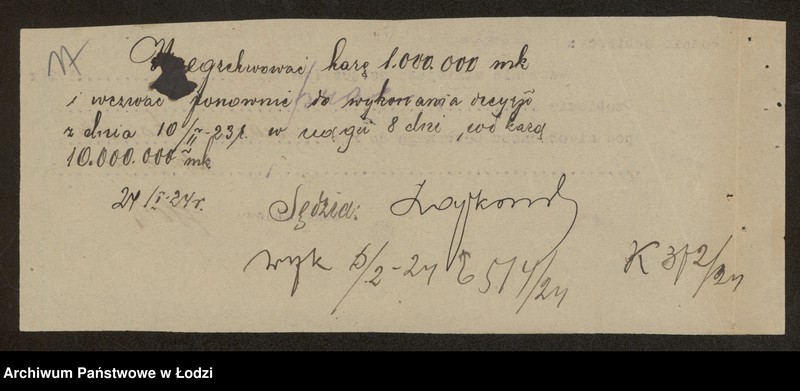 Wyegzekwować karę 1.000.000 mk
i wezwać ponownie do wykonania decyzji
z dnia 10/II-23 r. w ciągu 8 dni, pod karą
10.000.000 mk
24/I-24 r.
Sędzia:
wyk 5/2-24
K 312/24
Archiwum Państwowe w Łodzi